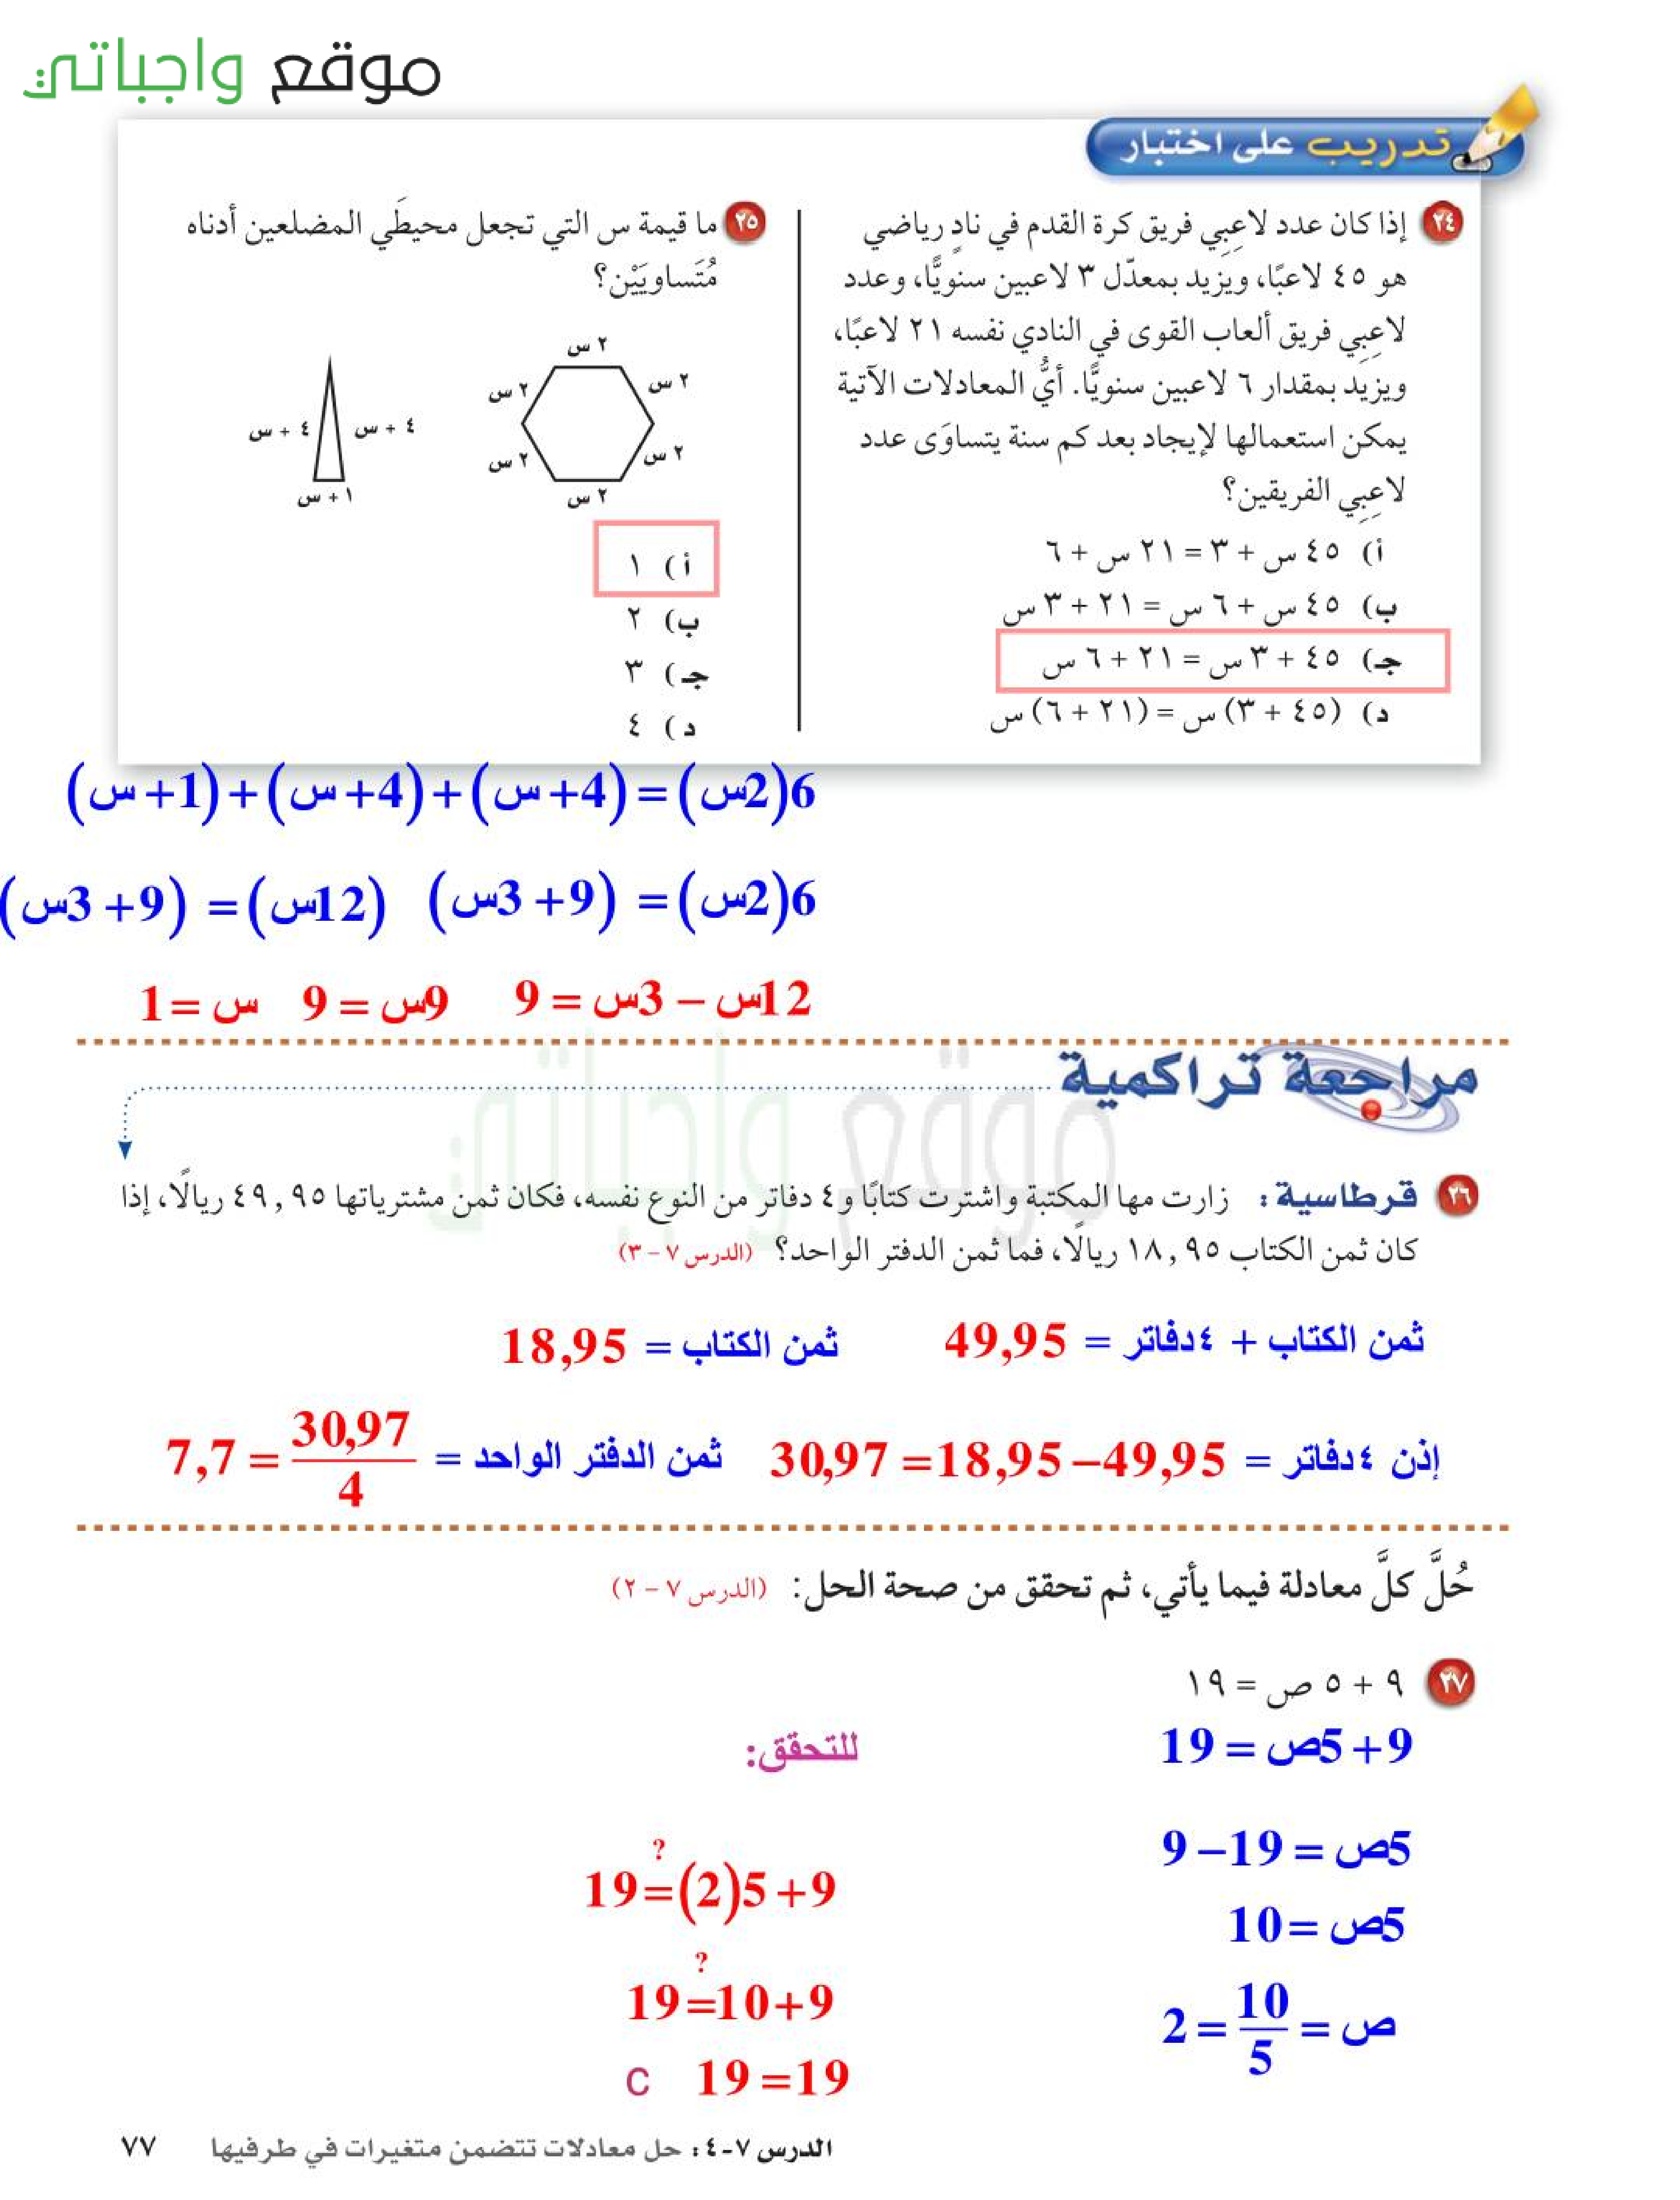 موقع واجباتي
تدريب على اختبار
٢٤ إذا كان عدد لاعِبِي فريق كرة القدم في نادٍ رياضي
هو ٤٥ لاعبًا، ويزيد بمعدّل ٣ لاعبين سنويًّا، وعدد
لاعِبِي فريق ألعاب القوى في النادي نفسه ٢١ لاعبًا،
ويزيد بمقدار ٦ لاعبين سنويًّا. أيُّ المعادلات الآتية
يمكن استعمالها لإيجاد بعد كم سنة يتساوَى عدد
لاعِبِي الفريقين؟
أ) ٤٥ س + ٣ = ٢١ س + ٦
ب) ٤٥ س + ٦ س = ٢١ + ٣ س
جـ) ٤٥ + ٣ س = ٢١ + ٦ س
د) (٤٥ + ٣) س = (٢١ + ٦) س
٢٥ ما قيمة س التي تجعل محيطَي المضلعين أدناه
مُتَساويَيْن؟
٢ س
٢ س
٢ س
٢ س
٢ س
٢ س
٤ + س
٤ + س
١ + س
أ) ١
ب) ٢
جـ) ٣
د) ٤
6(2س) = (4+ س) + (4+ س) + (1+ س)
6(2س) = (9+ 3س) (12س) = (9+ 3س)
12س – 3س = 9 9س = 9 س = 1
مراجعة تراكمية
موقع واجباتي
٢٦ قرطاسية: زارت مها المكتبة واشترت كتابًا و٤ دفاتر من النوع نفسه، فكان ثمن مشترياتها ٤٩,٩٥ ريالًا، إذا
كان ثمن الكتاب ١٨,٩٥ ريالًا، فما ثمن الدفتر الواحد؟ (الدرس ٧ – ٣)
ثمن الكتاب + ٤دفاتر = 49,95 ثمن الكتاب = 18,95
إذن ٤دفاتر = 49,95– 18,95= 30,97 ثمن الدفتر الواحد = 30,97/4 = 7,7
حُلَّ كلَّ معادلة فيما يأتي، ثم تحقق من صحة الحل: (الدرس ٧ – ٢)
٢٧ ٩ + ٥ ص = ١٩
9+ 5ص = 19
5ص = 19– 9
5ص = 10
ص = 10/5 = 2
للتحقق:
?
9+ 5(2)= 19
?
9+10= 19
19= 19 C
الدرس ٧-٤: حل معادلات تتضمن متغيرات في طرفيها ٧٧